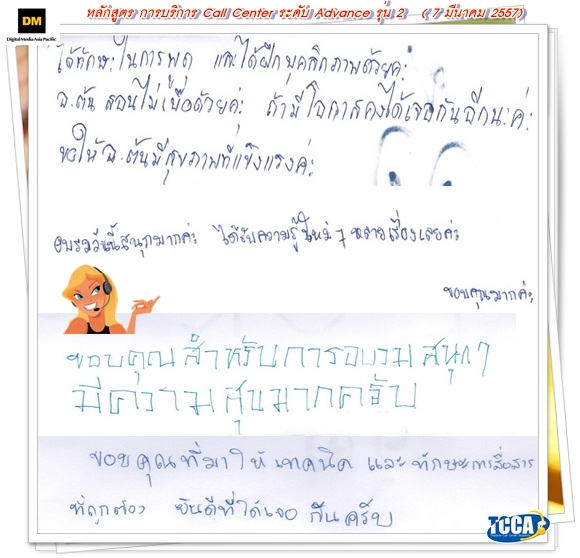 หลักสูตร การบริการ Call Center ระดับ Advance รุ่น 2 ( 7 มีนาคม 2557)
DM
Digital Media Asia Pacific
ได้ทักษะในการพูด และได้ฝึกบุคลิกภาพด้วยค่ะ
อ.ต้น สอนไม่เบื่อด้วยค่ะ ถ้ามีโอกาสคงได้เจอกันอีกนะค่ะ
ขอให้ อ.ต้นมีสุขภาพที่แข็งแรงค่ะ
อบรมวันนี้สนุกมากค่ะ ได้รับความรู้ใหม่ๆ หลายเรื่องเลยค่ะ
ขอบคุณมากค่ะ
ขอบคุณสำหรับการอบรม สนุกๆ
มีความสุขมากครับ
ขอบคุณที่มาให้ เทคนิค และ ทักษะการสื่อสาร
ที่ถูกต้อง ยินดีที่ได้เจอ กันครับ
TCCA